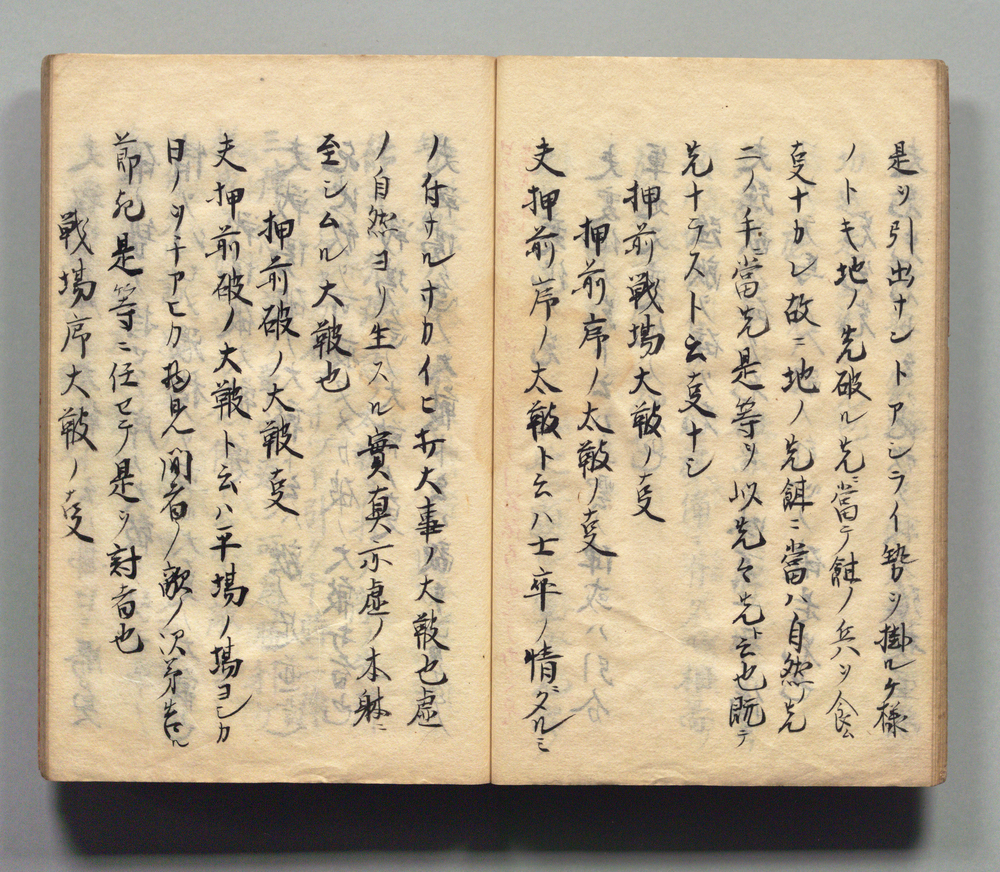 是ヲ引出サントアシライ勢ヲ掛ル々様
ノトキ地ノ先破ル先ニ當テ餌ノ兵ヲ食ム
㕝ナカレ故ニ地ノ先餌ニ當ハ自然ノ先
二ノ手ニ當先是等ヲ以先々先ト云也既テ
先ナラスト云㕝ナシ
押前戦場大鼓ノ㕝
押前序ノ太鼓ノ㕝
夫押前序ノ太鼓ト云ハ士卒ノ情ダルミ
ノ付サルサカイヒ打大事ノ大鼓也虚
ノ自然ヨリ生スル實真亦虚ノ本躰ニ
至シムル大鼓也
押前破ノ大鼓㕝
夫押前破ノ大鼓ト云ハ平場ノ場ヨシカ
日ノツチアヒカ物見聞者ノ敵ノ次第告ル
節宛是等ニ任セテ是ヲ討者也
戦場序大鼓ノ㕝